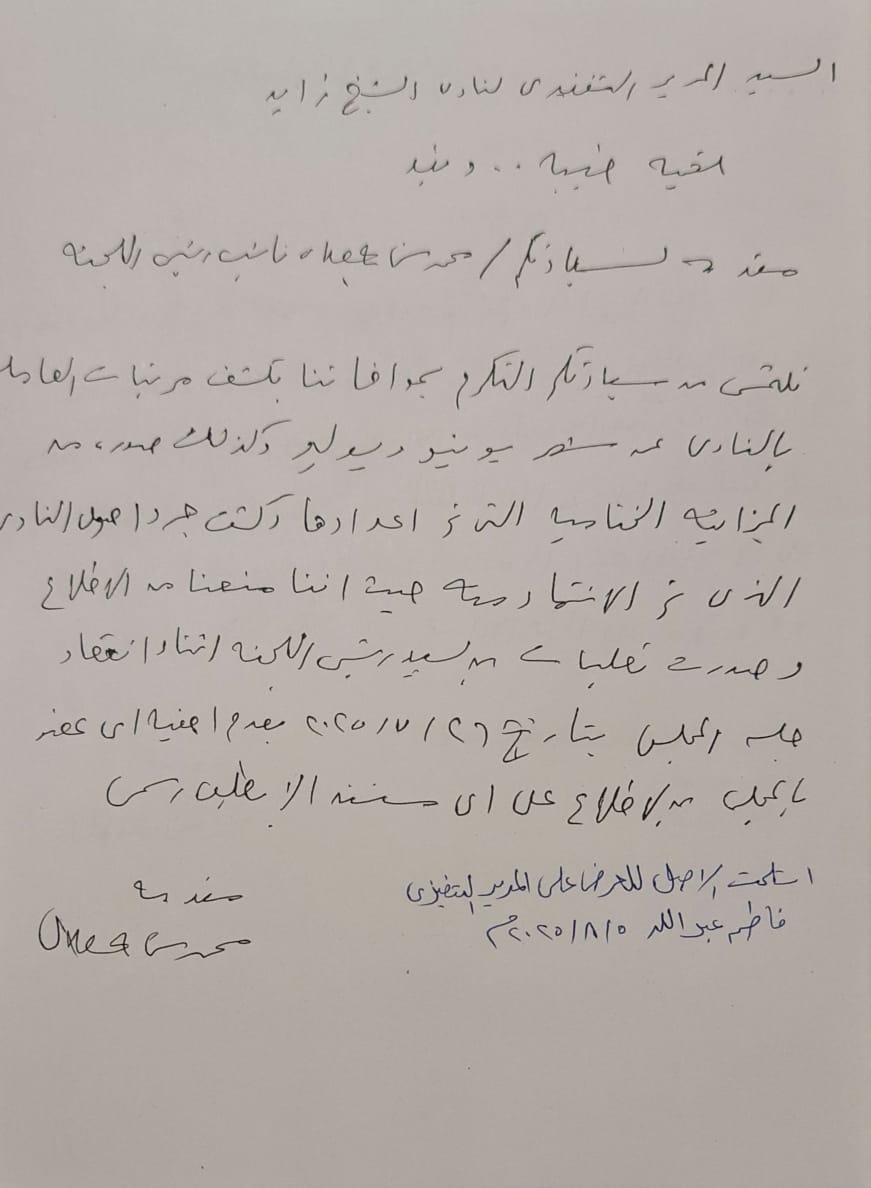 السيد المدير التنفيذى لنادى الشيخ زايد
تحية طيبة .. وبعد
مقدمه لسيادتكم / محمد نائب رئيس اللجنه
نلتمس من سيادتكم التكرم بموافاتنا بكشف مرتبات
بالنادى عن شهر يونيو ويوليو وكذلك صوره من
الميزانيه الختاميه التى تم اعدادها وكشف جرد اصول النادى
الذى تم الانتهاء منه حيث اننا منعنا من الاطلاع
وصدرت تعليمات من السيد رئيس اللجنه اثناء انعقاد
جلسه المجلس بتاريخ ٢٠٢٥/٧/٢٦ بعدم احقية اى عضو
بالمجلس من الاطلاع على اى مستند الا بطلب رسمى
استلمت الاصل للعرض على المدير التنفيذى
فاطمه عبدالله ٢٠٢٥/٨/٥م
مقدمه
محمد